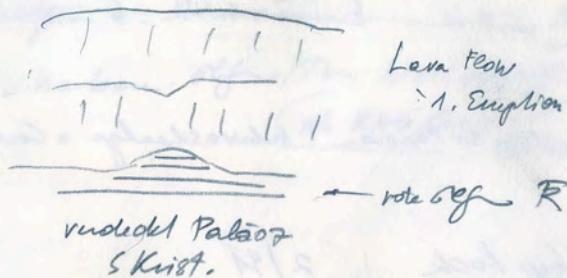 Lava Flow
1. Eruption
rote
verdeckt Paläoz
S Krist.